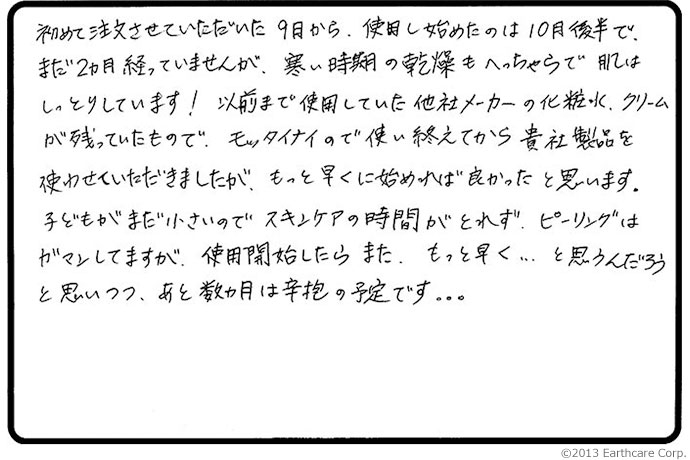 初めて注文させていただいた9月から、使用し始めたのは10月後半で、
まだ2ヵ月経っていませんが、寒い時期の乾燥もへっちゃらで肌は
しっとりしています! 以前まで使用していた他社メーカーの化粧水、クリーム
が残っていたもので、モッタイナイので使い終えてから貴社製品を
使わせていただきましたが、もっと早くに始めれば良かったと思います。
子どもがまだ小さいのでスキンケアの時間がとれず、ピーリングは
ガマンしてますが、使用開始したらまた、もっと早く…と思うんだろう
と思いつつ、あと数ヵ月は辛抱の予定です。。。
©2013 Earthcare Corp.